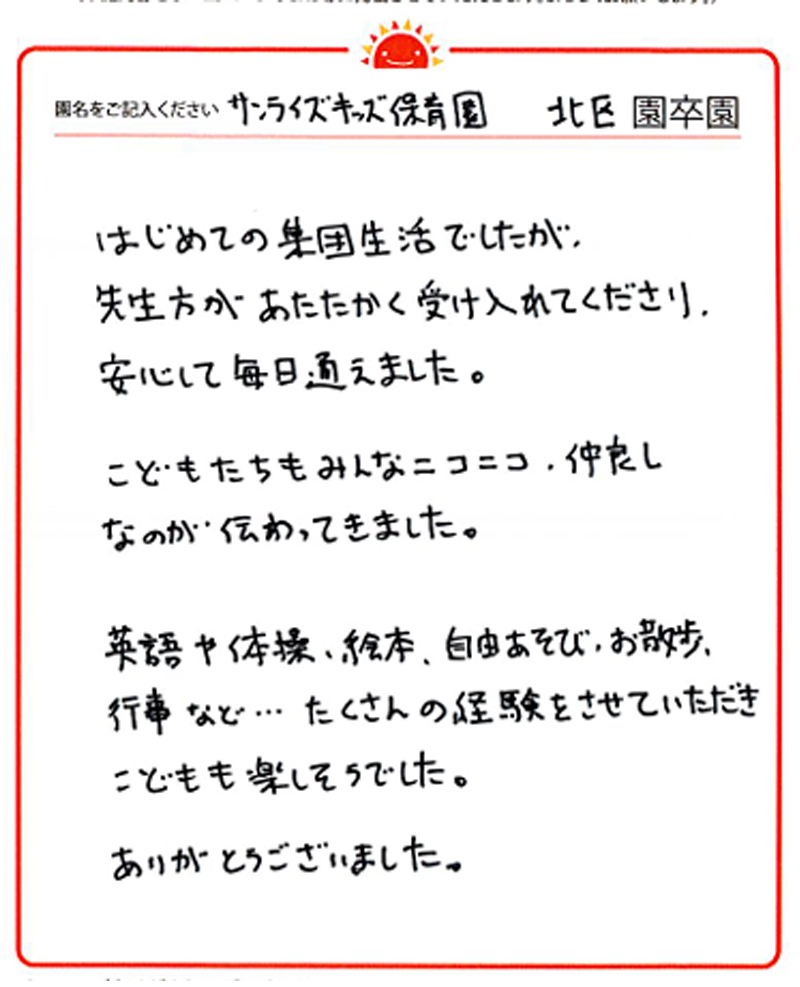 園名をご記入ください サンライズキッズ保育園 北区 園卒園
はじめての集団生活でしたが、
先生方があたたかく受け入れてくださり、
安心して毎日通えました。
こどもたちもみんなニコニコ、仲良し
なのが伝わってきました。
英語や体操、絵本、自由あそび、お散歩、
行事など… たくさんの経験をさせていただき
こどもも楽しそうでした。
ありがとうございました。